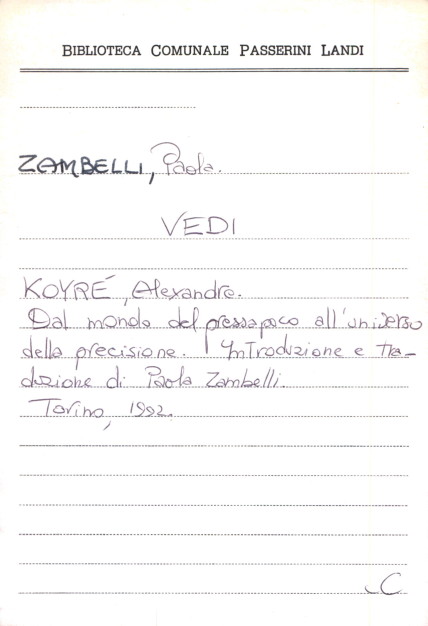 BIBLIOTECA COMUNALE PASSERINI LANDI
ZAMBELLI, Paola.
VEDI
KOYRÉ, Alexandre.
Dal mondo del pressapoco all'universo
della precisione. Introduzione e tra-
duzione di Paola Zambelli.
Torino, 1992.
C